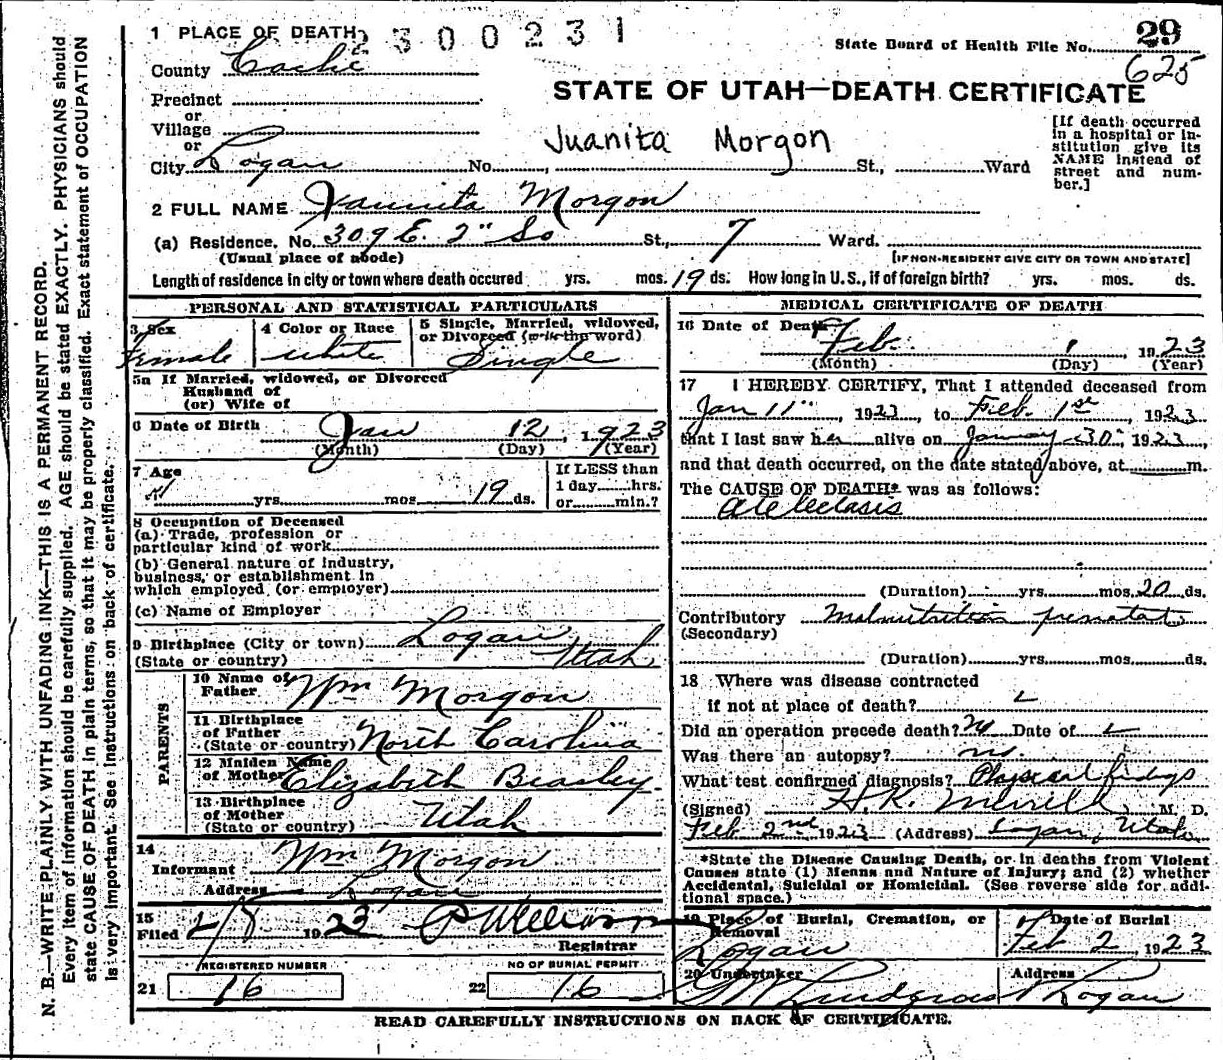 1 PLACE OF DEATH
2300231
State Board of Health File No. 29
625
County Cache
STATE OF UTAH—DEATH CERTIFICATE
Precinct
or
Village
or
City Logan No. St., Ward
Juanita Morgon
[If death occurred
in a hospital or in-
stitution give its
NAME instead of
street and num-
ber.]
2 FULL NAME Jaunita Morgon
(a) Residence. No. 309 E. 2" So St., 7 Ward.
(Usual place of abode)
[IF NON-RESIDENT GIVE CITY OR TOWN AND STATE]
Length of residence in city or town where death occured yrs. mos. 19 ds. How long in U.S., if of foreign birth? yrs. mos. ds.
PERSONAL AND STATISTICAL PARTICULARS
3 Sex
Female
4 Color or Race
white
5 Single, Married, widowed,
or Divorced (write the word)
Single
5a If Married, widowed, or Divorced
Husband of
(or) Wife of
6 Date of Birth Jan 12, 1923
(Month) (Day) (Year)
7 Age
yrs. mos. 19 ds.
If LESS than
1 day hrs.
or min.?
8 Occupation of Deceased
(a) Trade, profession or
particular kind of work
(b) General nature of industry,
business, or establishment in
which employed (or employer)
(c) Name of Employer
9 Birthplace (City or town) Logan
(State or country) Utah
PARENTS
10 Name of
Father Wm Morgon
11 Birthplace
of Father
(State or country) North Carolina
12 Maiden Name
of Mother Elizabeth Beasley
13 Birthplace
of Mother
(State or country) Utah
14
Informant Wm Morgon
Address Logan
15
Filed 2/8 1923
Registrar
REGISTERED NUMBER
21 16
NO OF BURIAL PERMIT
22 16
MEDICAL CERTIFICATE OF DEATH
16 Date of Death Feb. 1, 1923
(Month) (Day) (Year)
17 I HEREBY CERTIFY, That I attended deceased from
Jan 11", 1923 to Feb. 1st, 1923
that I last saw her alive on January 30", 1923,
and that death occurred, on the date stated above, at m.
The CAUSE OF DEATH* was as follows:
Atelectasis
(Duration) yrs. mos. 20 ds.
Contributory Malnutrition prenatal
(Secondary)
(Duration) yrs. mos. ds.
18 Where was disease contracted
if not at place of death?
Did an operation precede death? No Date of
Was there an autopsy? no
What test confirmed diagnosis? Physical findings
(Signed) H.K. Merrill, M. D.
Feb 2nd 1923 (Address) Logan, Utah
*State the Disease Causing Death, or in deaths from Violent
Causes state (1) Means and Nature of Injury; and (2) whether
Accidental, Suicidal or Homicidal. (See reverse side for addi-
tional space.)
19 Place of Burial, Cremation, or
Removal
Logan
Date of Burial
Feb 2 1923
20 Undertaker
Address
Logan
READ CAREFULLY INSTRUCTIONS ON BACK OF CERTIFICATE.
N. B.—WRITE PLAINLY WITH UNFADING INK—THIS IS A PERMANENT RECORD.
Every item of information should be carefully supplied. AGE should be stated EXACTLY. PHYSICIANS should
state CAUSE OF DEATH in plain terms, so that it may be properly classified. Exact statement of OCCUPATION
is very important. See instructions on back of certificate.